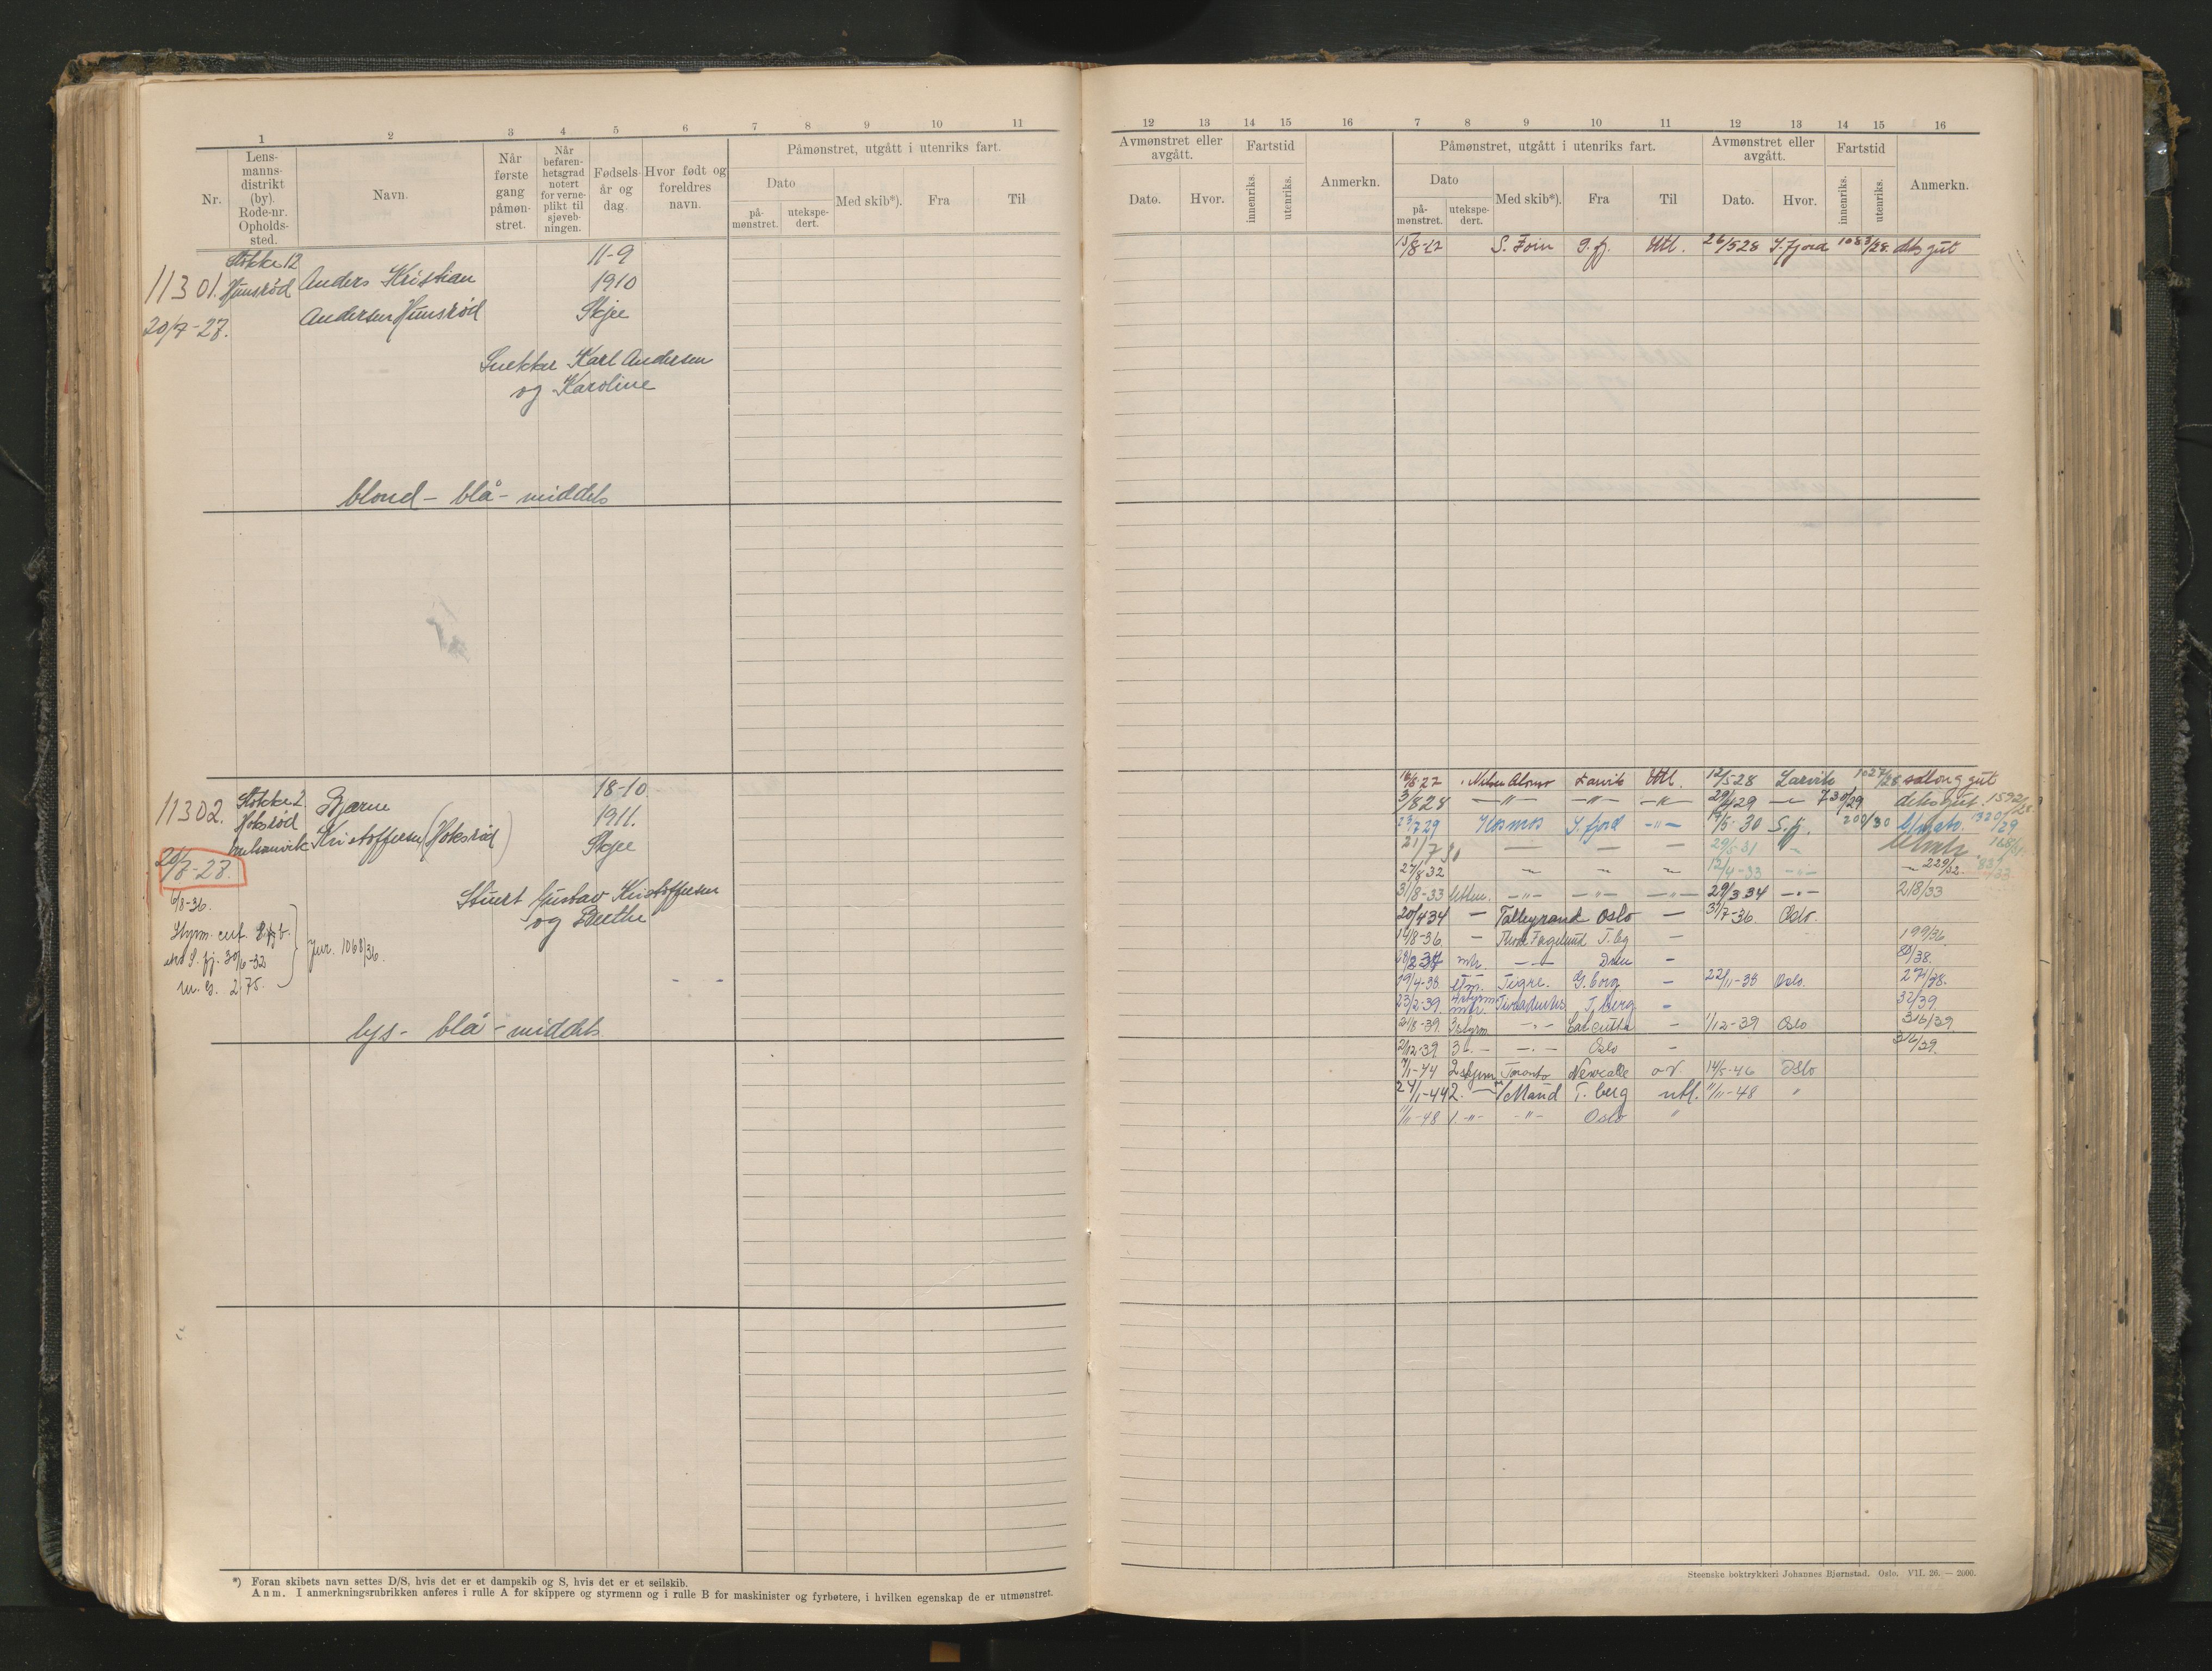 1 2 3 4 5 6 7 8 9 10 11
Nr.
Lens-
manns-
distrikt
(by).
Rode-nr.
Opholds-
sted.
Navn.
Når
første
gang
påmøn-
stret.
Når
befaren-
hetsgrad
notert
for verne-
plikt til
sjøveb-
ningen.
Fødsels-
år og
dag.
Hvor født og
foreldres
navn.
Påmønstret, utgått i utenriks fart.
Dato
på-
mønstret.
utekspe-
dert.
Med skib*).
Fra
Til
11301.
Stokke 12
Hunsrød
20/7-27.
Anders Kristian
Andersen Hunsrød
11-9
1910
Skjee
Snekker Karl Andersen
og Karoline
blond - blå - middels
11302.
Stokke 2
Hoksrød
Bjarne
Kristoffersen (Hoksrød)
18-10
1911.
Skjee
6/8-36.
Styrm. cert.
S. fj. 30/6-32
2.75.
Jur. 1068/36.
Gustav Kristoffersen
og Berthe
lys - blå - middels
*) Foran skibets navn settes D/S, hvis det er et dampskib og S, hvis det er et seilskib.
Anm. I anmerkningsrubrikken anføres i rulle A for skippere og styrmenn og i rulle B for maskinister og fyrbøtere, i hvilken egenskap de er utmønstret.
12 13 14 15 16 7 8 9 10 11 12 13 14 15 16
Avmønstret eller
avgått.
Dato.
Hvor.
Fartstid
innenriks.
utenriks.
Anmerkn.
Påmønstret, utgått i utenriks fart.
Dato
på-
mønstret.
utekspe-
dert.
Med skib*).
Fra
Til
Avmønstret eller
avgått.
Dato.
Hvor.
Fartstid
innenriks.
utenriks.
Anmerkn.
S. Foin S. fj. Utl. 26/5 28 S. fjord 1083/28. deksgut
16/8-27 Nielsen Alonso Larvik Utl. 12/5 28 Larvik 1027/28 salong gut
3/8 28 -"- -"- -"- 29/4 29 730/29 deksgut
23/7 29 Kosmos S. fjord -"- 17/5-30 S. fj. 200/30 1320/29
21/7 30 - - - 29/5-31
27/8 32 12/4-33 229/32.
31/8-33 -"- -"- -"- 29/3 34 218/33
20/4 34 - Talleyrand Oslo - 31/7-36 Oslo.
14/8-36 - Thode Fagelund T. bg - 199/36
mtr. - Dram - 88/38.
19/4-38 Tigre. G. borg - 22/11-38 Oslo. 274/38.
23/2-39. mtr. T. berg - 32/39
21/8-39. 3 styrm Calcutta - 1/12-39 Oslo 316/39
2/12-39 3 - Oslo -
7/1-44 2 styrm Toronto 14/5-46 Oslo
24/1-44 2. - T. berg utl. 11/11-48 "
11/11-48 1. -"- -"- Oslo "
Steenske boktrykkeri Johannes Bjørnstad. Oslo. VII. 26. — 2000.